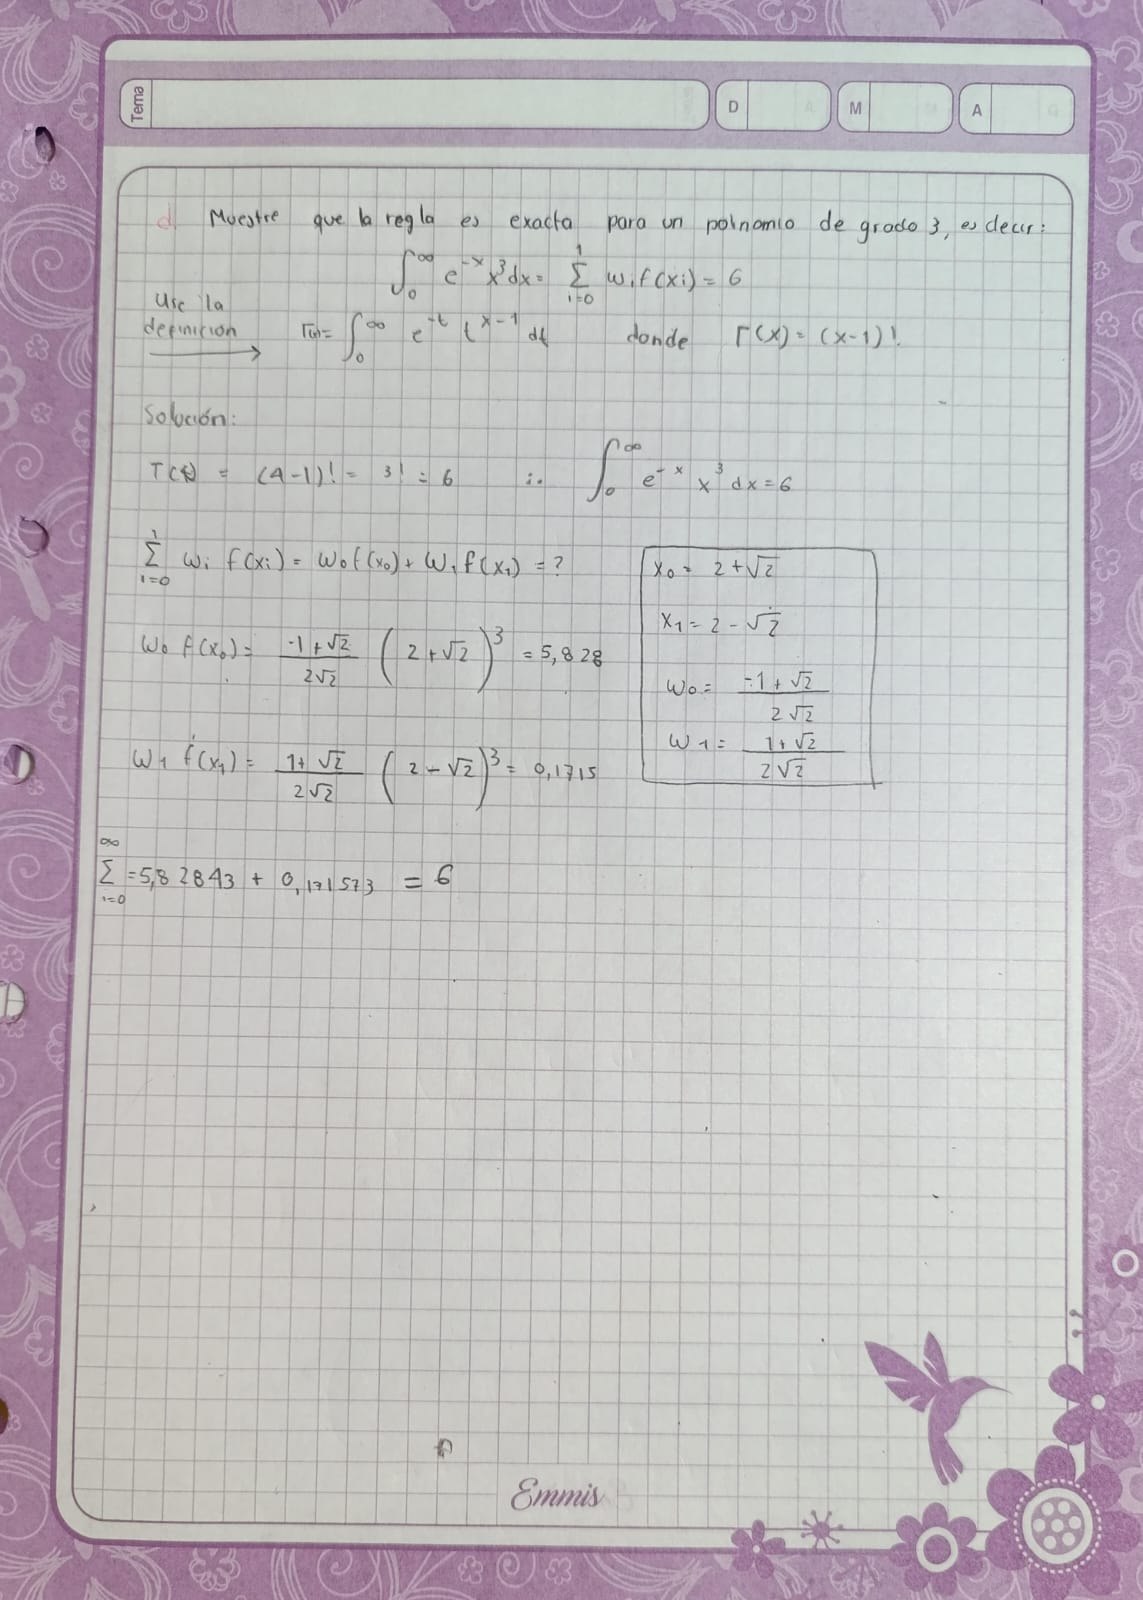 Tema D M A
d. Muestre que la regla es exacta para un polnomio de grado 3, es decir:
∫₀^∞ e^-x x³dx = Σ_{i=0}^{1} wᵢ f(xᵢ) = 6
Use la
definición → Γ(x) = ∫₀^∞ e^-t t^x-1 dt donde Γ(x) = (x-1)!
Solución:
Γ(4) = (4-1)! = 3! = 6 ∴ ∫₀^∞ e^-x x³ dx = 6
Σ_{i=0}^{1} wᵢ f(xᵢ) = w₀ f(x₀) + w₁ f(x₁) = ?
x₀ = 2+√2
x₁ = 2-√2
w₀ = (-1+√2)/(2√2)
w₁ = (1+√2)/(2√2)
w₀ f(x₀) = (-1+√2)/(2√2) (2+√2)³ = 5,828
w₁ f(x₁) = (1+√2)/(2√2) (2-√2)³ = 0,1715
Σ_{i=0}^{∞} = 5,82843 + 0,171573 = 6
Emmis